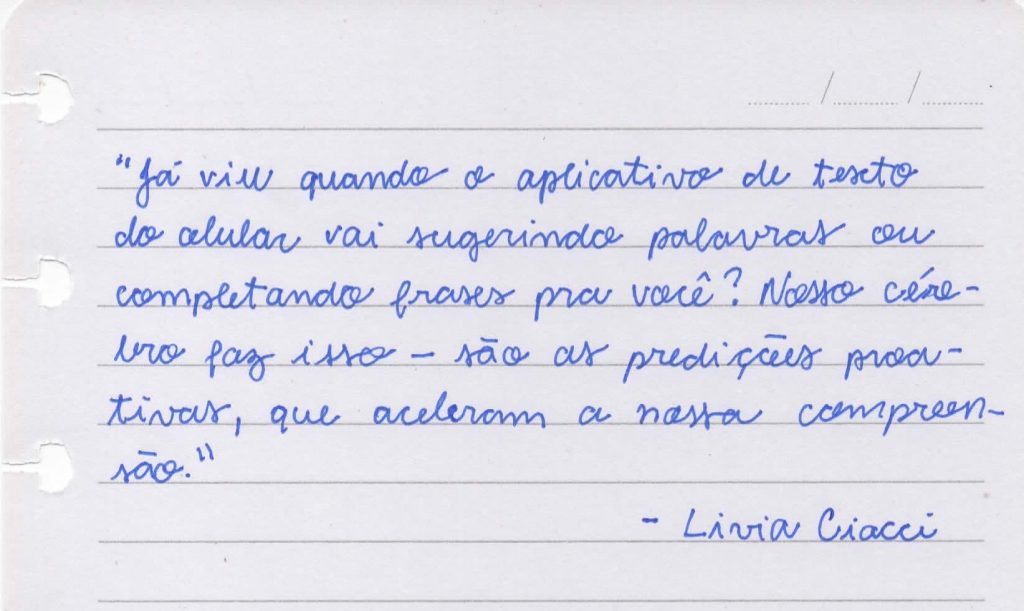 "Já viu quando o aplicativo de texto
do celular vai sugerindo palavras ou
completando frases pra você? Nosso cére-
bro faz isso - são as predições proa-
tivas, que aceleram a nossa compreen-
são."
- Livia Ciacci